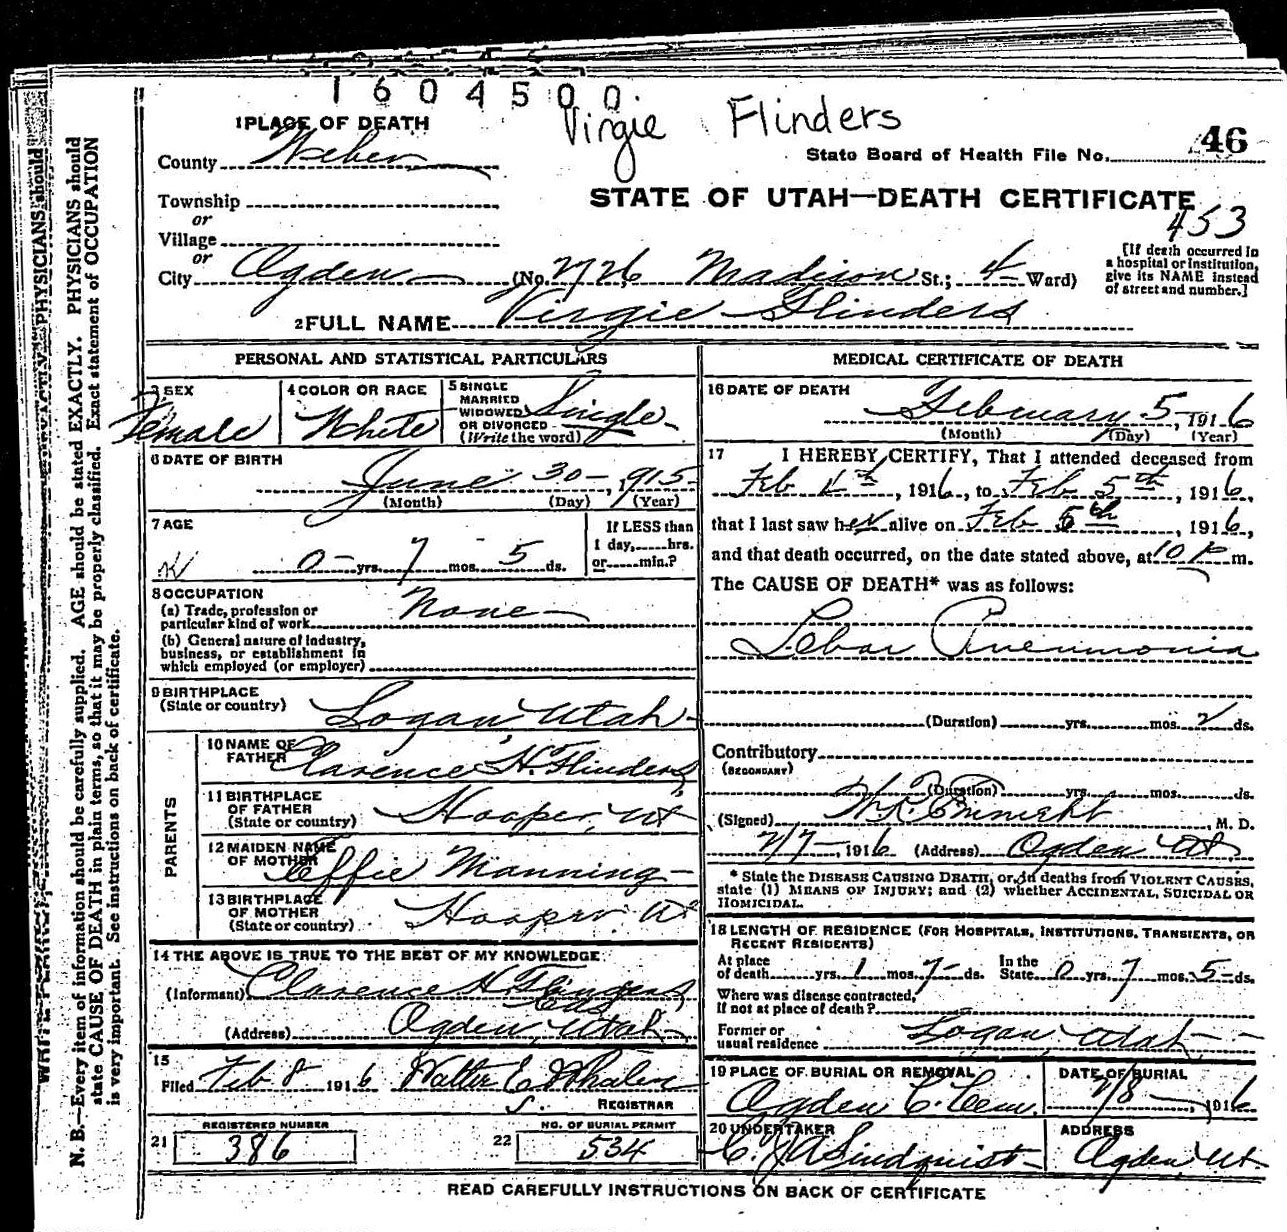 1604500
Virgie Flinders
1 PLACE OF DEATH
County Weber
State Board of Health File No. 46
STATE OF UTAH—DEATH CERTIFICATE
453
Township
or
Village
or
City Ogden (No. 2726 Madison St.; 4 Ward)
[If death occurred in
a hospital or institution,
give its NAME instead
of street and number.]
2 FULL NAME Virgie Flinders
PERSONAL AND STATISTICAL PARTICULARS
3 SEX
Female
4 COLOR OR RACE
White
5 SINGLE
MARRIED
WIDOWED
OR DIVORCED
(Write the word)
Single
6 DATE OF BIRTH
June 30 - 1915
(Month) (Day) (Year)
7 AGE
0 yrs. 7 mos. 5 ds.
If LESS than
1 day, hrs.
or min.?
8 OCCUPATION
(a) Trade, profession or
particular kind of work None
(b) General nature of industry,
business, or establishment in
which employed (or employer)
9 BIRTHPLACE
(State or country) Logan, Utah
PARENTS
10 NAME OF
FATHER Clarence H. Flinders
11 BIRTHPLACE
OF FATHER
(State or country) Hooper, Ut
12 MAIDEN NAME
OF MOTHER Effie Manning
13 BIRTHPLACE
OF MOTHER
(State or country) Hooper Ut
14 THE ABOVE IS TRUE TO THE BEST OF MY KNOWLEDGE
(Informant) Clarence H Flinders
(Address) Ogden, Utah
15
Filed Feb 8 1916 Walter E Whalen
REGISTRAR
REGISTERED NUMBER
21 386
NO. OF BURIAL PERMIT
22 534
MEDICAL CERTIFICATE OF DEATH
16 DATE OF DEATH
February 5, 1916
(Month) (Day) (Year)
17 I HEREBY CERTIFY, That I attended deceased from
Feb th, 1916, to Feb 5th, 1916,
that I last saw her alive on Feb 5th, 1916,
and that death occurred, on the date stated above, at 10 P m.
The CAUSE OF DEATH* was as follows:
Lobar Pneumonia
(Duration) yrs. mos. 2 ds.
Contributory
(SECONDARY)
(Duration) yrs. mos. ds.
(Signed) M. D.
2/7 - , 1916 (Address) Ogden Ut.
* State the DISEASE CAUSING DEATH, or, in deaths from VIOLENT CAUSES,
state (1) MEANS OF INJURY; and (2) whether ACCIDENTAL, SUICIDAL OR
HOMICIDAL.
18 LENGTH OF RESIDENCE (FOR HOSPITALS, INSTITUTIONS, TRANSIENTS, OR
RECENT RESIDENTS)
At place
of death yrs. 1 mos. 7 ds.
In the
State 0 yrs. 7 mos. 5 ds.
Where was disease contracted,
If not at place of death?
Former or
usual residence Logan, Utah
19 PLACE OF BURIAL OR REMOVAL
Ogden C. Cem.
DATE OF BURIAL
2/8, 1916
20 UNDERTAKER
C. J. A Lindquist
ADDRESS
Ogden Ut.
READ CAREFULLY INSTRUCTIONS ON BACK OF CERTIFICATE
N. B.—Every item of information should be carefully supplied. AGE should be stated EXACTLY. PHYSICIANS should
state CAUSE OF DEATH in plain terms, so that it may be properly classified. Exact statement of OCCUPATION
is very important. See instructions on back of certificate.
PHYSICIANS should